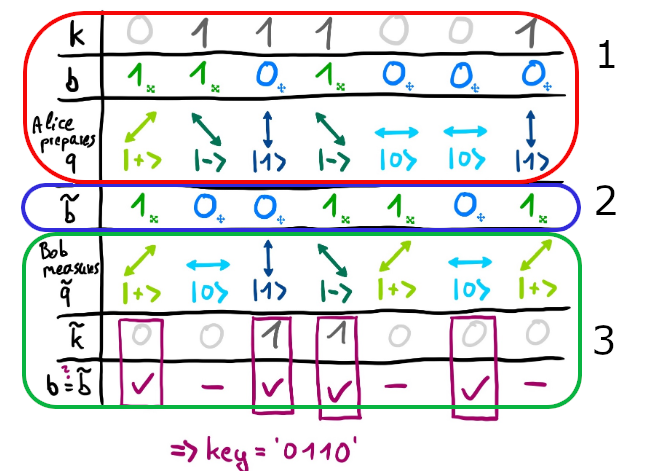 k 0 1 1 1 0 0 1
1
b 1× 1× 0+ 1× 0+ 0+ 0+
Alice
prepares
q |+> |-> |1> |-> |0> |0> |1>
b̃ 1× 0+ 0+ 1× 1× 0+ 1×
2
Bob
measures
q̃ |+> |0> |1> |-> |+> |0> |+>
k̃ 0 0 1 1 0 0 0
3
b ?= b̃ ✓ – ✓ ✓ – ✓ –
=> key = '0110'